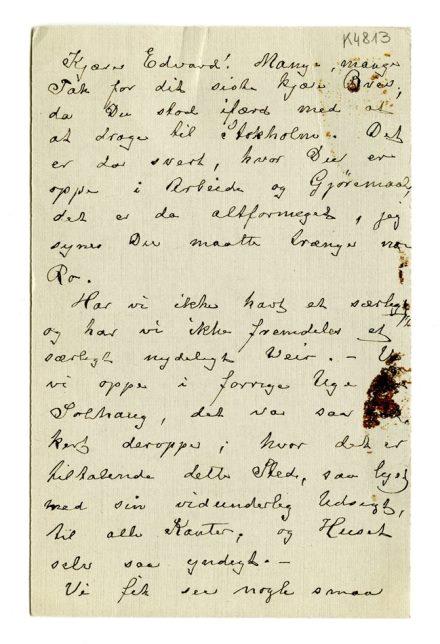 K4813
Kjære Edvard! Mange, mange
Tak for dit siste kjære Brev,
da Du stod ifærd med at
at drage til Stokholm. Det
er da svert, hvor Du er
oppe i Arbeide og Gjøremaal,
det er da altformeget, jeg
synes Du maatte trænge
Ro.
Har vi ikke havt et særlig
og har vi ikke fremdeles et
særligt nydeligt Veir. –
vi oppe i forrige Uge
Solhaug, det var saa
kert deroppe; hvor det er
tiltalende dette Sted, saa lyst
med sin vidunderlig Udsigt,
til alle Kanter, og Huset
selv saa yndigt. –
Vi fik see nogle smaa